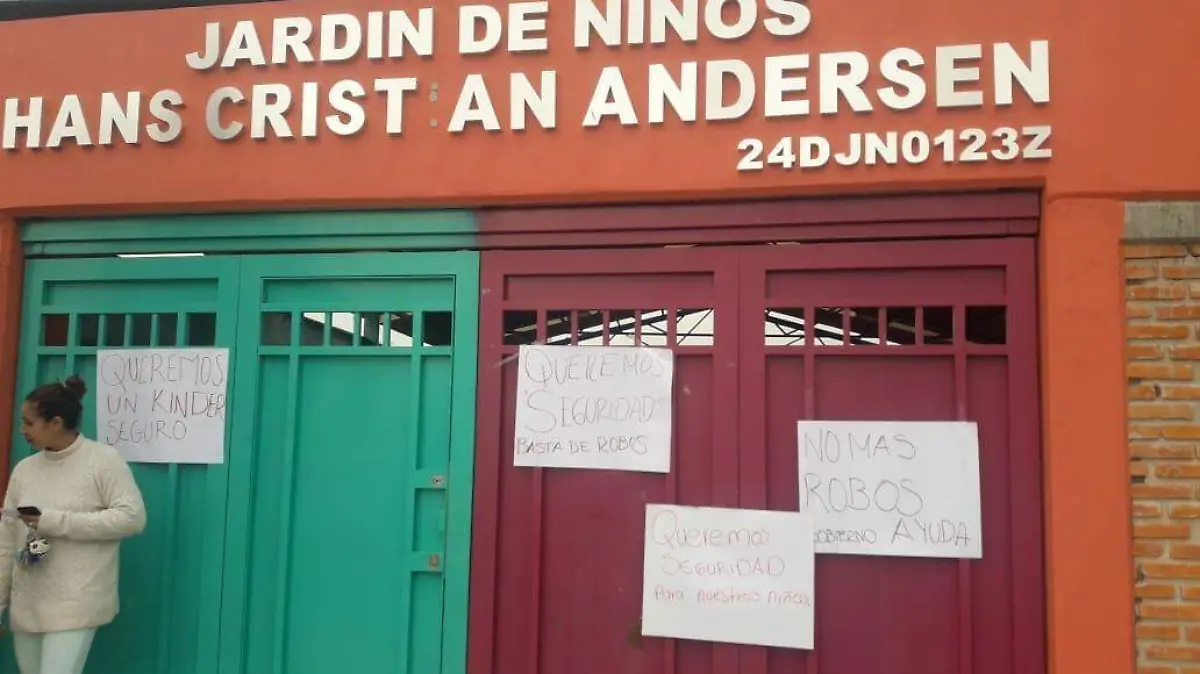 JARDIN DE NIÑOS
HANS CRIST AN ANDERSEN
24DJN0123Z
QUEREMOS
UN KINDER
SEGURO
QUEREMOS
"SEGURIDAD"
BASTA DE ROBOS
NO MAS
ROBOS
GOBIERNO AYUDA
Queremos
SEGURIDAD
Para nuestros niños